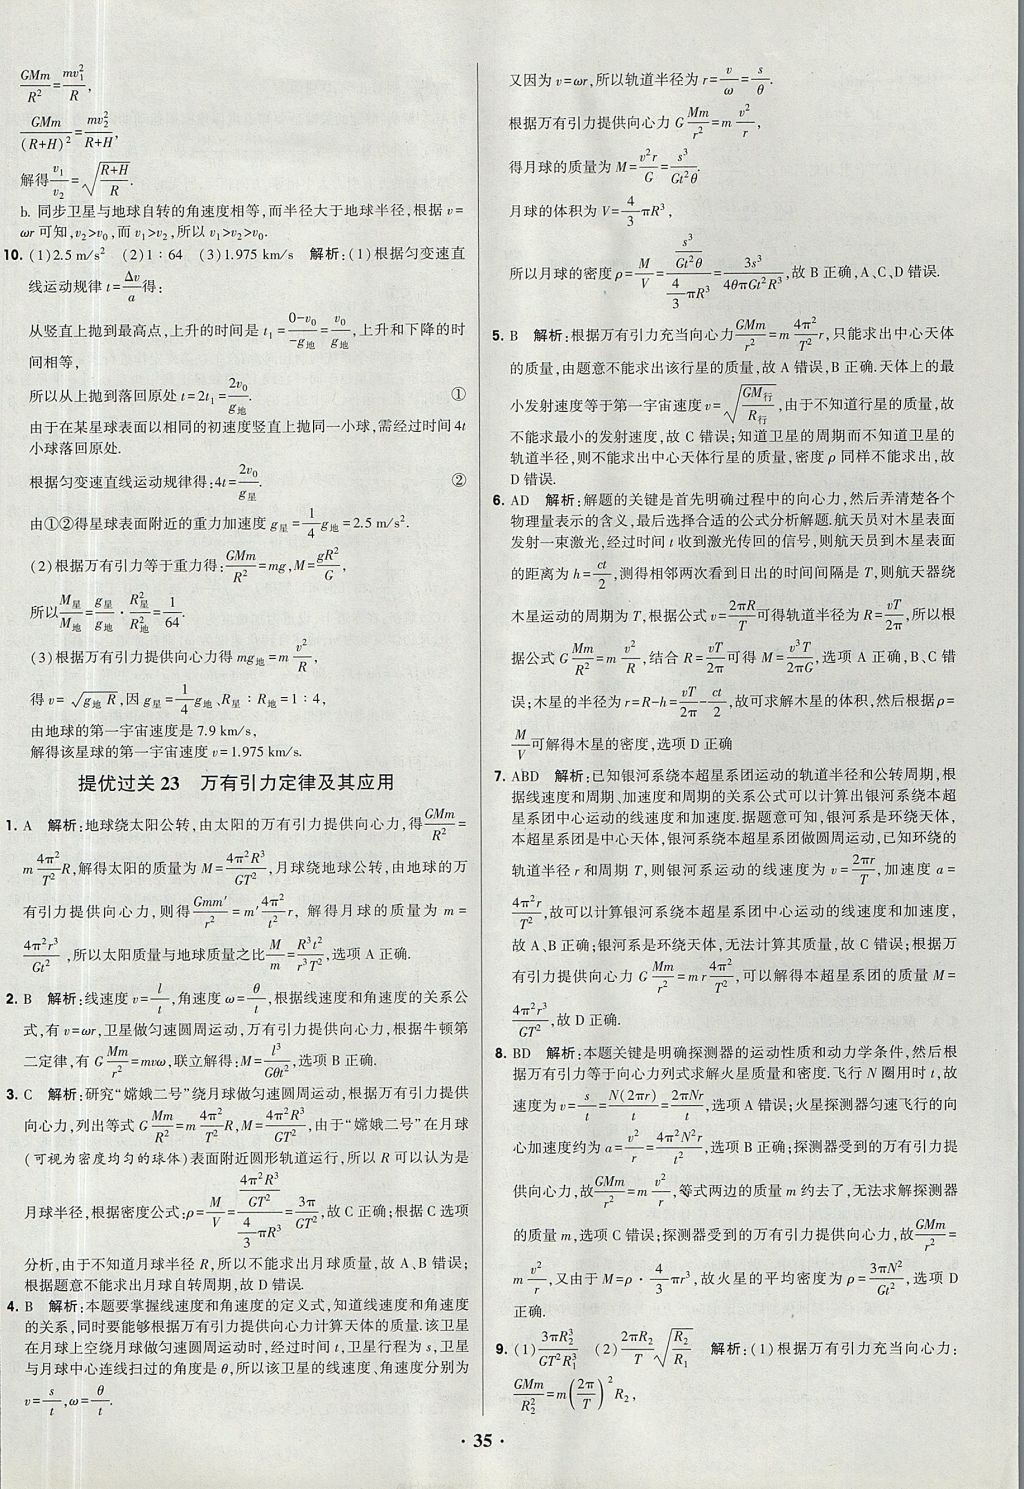 GMm/R²=mv₁²/R,
GMm/(R+H)²=mv₂²/(R+H),
解得v₁/v₂=√((R+H)/R).
b. 同步卫星与地球自转的角速度相等,而半径大于地球半径,根据 v=
ωr 可知,v₂>v₀,而 v₁>v₂,所以 v₁>v₂>v₀.
10. (1)2.5 m/s² (2)1∶64 (3)1.975 km/s 解析:(1)根据匀变速直
线运动规律 t=Δv/a得:
从竖直上抛到最高点,上升的时间是 t₁=(0-v₀)/(-g地)=v₀/g地,上升和下降的时
间相等,
所以从上抛到落回原处 t=2t₁=2v₀/g地. ①
由于在某星球表面以相同的初速度竖直上抛同一小球,需经过时间 4t
小球落回原处.
根据匀变速直线运动规律得:4t=2v₀/g星. ②
由①②得星球表面附近的重力加速度 g星=1/4 g地=2.5 m/s².
(2)根据万有引力等于重力得:GMm/R²=mg,M=gR²/G,
所以M星/M地=g星/g地·R星²/R地²=1/64.
(3)根据万有引力提供向心力得 mg地=m v²/R,
得 v=√(g地 R),因 g星=1/4 g地、R星∶R地=1∶4,
由地球的第一宇宙速度是 7.9 km/s,
解得该星球的第一宇宙速度 v=1.975 km/s.
提优过关 23 万有引力定律及其应用
1. A 解析:地球绕太阳公转,由太阳的万有引力提供向心力,得GMm/R²=
m 4π²/T² R,解得太阳的质量为 M=4π²R³/GT²,月球绕地球公转,由地球的万
有引力提供向心力,则得Gmm′/r²=m′4π²/t² r, 解得月球的质量为 m=
4π²r³/Gt²,所以太阳质量与地球质量之比M/m=R³t²/r³T²,选项 A 正确.
2. B 解析:线速度 v=l/t,角速度 ω=θ/t,根据线速度和角速度的关系公
式,有 v=ωr,卫星做匀速圆周运动,万有引力提供向心力,根据牛顿第
二定律,有 G Mm/r²=mvω,联立解得:M=l³/Gθt²,选项 B 正确.
3. C 解析:研究“嫦娥二号”绕月球做匀速圆周运动,根据万有引力提供
向心力,列出等式 G Mm/R²=m 4π²/T² R,M=4π²R³/GT²,由于“嫦娥二号”在月球
(可视为密度均匀的球体)表面附近圆形轨道运行,所以 R 可以认为是
月球半径,根据密度公式:ρ=M/V=(4π²R³/GT²)/(4/3 πR³)=3π/GT²,故 C 正确;根据 C 选项
分析,由于不知道月球半径 R,所以不能求出月球质量,故 A、B 错误;
根据题意不能求出月球自转周期,故 D 错误.
4. B 解析:本题要掌握线速度和角速度的定义式,知道线速度和角速度
的关系,同时要能够根据万有引力提供向心力计算天体的质量.该卫星
在月球上空绕月球做匀速圆周运动时,经过时间 t,卫星行程为 s,卫星
与月球中心连线扫过的角度是 θ,所以该卫星的线速度、角速度分别为
v=s/t,ω=θ/t.
又因为 v=ωr,所以轨道半径为 r=v/ω=s/θ.
根据万有引力提供向心力 G Mm/r²=m v²/r,
得月球的质量为 M=v²r/G=s³/Gt²θ.
月球的体积为 V=4/3 πR³,
所以月球的密度 ρ=M/V=(s³/Gt²θ)/(4/3 πR³)=3s³/4θπGt²R³,故 B 正确,A、C、D 错误.
5. B 解析:根据万有引力充当向心力GMm/r²=m 4π²/T² r,只能求出中心天体
的质量,由题意不能求出该行星的质量,故 A 错误,B 正确.天体上的最
小发射速度等于第一宇宙速度 v=√(GM行/R行),由于不知道行星的质量,故
不能求最小的发射速度,故 C 错误;知道卫星的周期而不知道卫星的
轨道半径,则不能求出中心天体行星的质量,密度 ρ 同样不能求出,故
D 错误.
6. AD 解析:解题的关键是首先明确过程中的向心力,然后弄清楚各个
物理量表示的含义,最后选择合适的公式分析解题.航天员对木星表面
发射一束激光,经过时间 t 收到激光传回的信号,则航天员到木星表面
的距离为 h=ct/2,测得相邻两次看到日出的时间间隔是 T,则航天器绕
木星运动的周期为 T,根据公式 v=2πR/T可得轨道半径为 R=vT/2π,所以根
据公式 G Mm/R²=m v²/R,结合 R=vT/2π可得 M=v³T/2πG,选项 A 正确,B、C 错
误;木星的半径为 r=R-h=vT/2π-ct/2,故可求解木星的体积,然后根据ρ=
M/V可解得木星的密度,选项 D 正确
7. ABD 解析:已知银河系绕本超星系团运动的轨道半径和公转周期,根
据线速度和周期、加速度和周期的关系公式可以计算出银河系绕本超
星系团中心运动的线速度和加速度.据题意可知,银河系是环绕天体,
本超星系团是中心天体,银河系绕本超星系团做圆周运动,已知环绕的
轨道半径 r 和周期 T,则银河系运动的线速度为 v=2πr/T,加速度 a=
4π²r/T²,故可以计算银河系绕本超星系团中心运动的线速度和加速度,
故 A、B 正确;银河系是环绕天体,无法计算其质量,故 C 错误;根据万
有引力提供向心力 G Mm/r²=mr 4π²/T²,可以解得本超星系团的质量 M=
4π²r³/GT²,故 D 正确.
8. BD 解析:本题关键是明确探测器的运动性质和动力学条件,然后根
据万有引力等于向心力列式求解火星质量和密度.飞行 N 圈用时 t,故
速度为 v=s/t=N(2πr)/t=2πNr/t,选项 A 错误;火星探测器匀速飞行的向
心加速度约为 a=v²/r=4π²N²r/t²,选项 B 正确;探测器受到的万有引力提
供向心力,故GMm/r²=m v²/r,等式两边的质量 m 约去了,无法求解探测器
的质量 m,选项 C 错误;探测器受到的万有引力提供向心力,故GMm/r²=
m v²/r,又由于 M=ρ·4/3 πr³,故火星的平均密度为 ρ=3πN²/Gt²,选项 D
正确.
9. (1)3πR₂³/GT²R₁³ (2)2πR₂/T √(R₂/R₁) 解析:(1)根据万有引力充当向心力:
GMm/R₂²=m(2π/T)²R₂,
· 35 ·